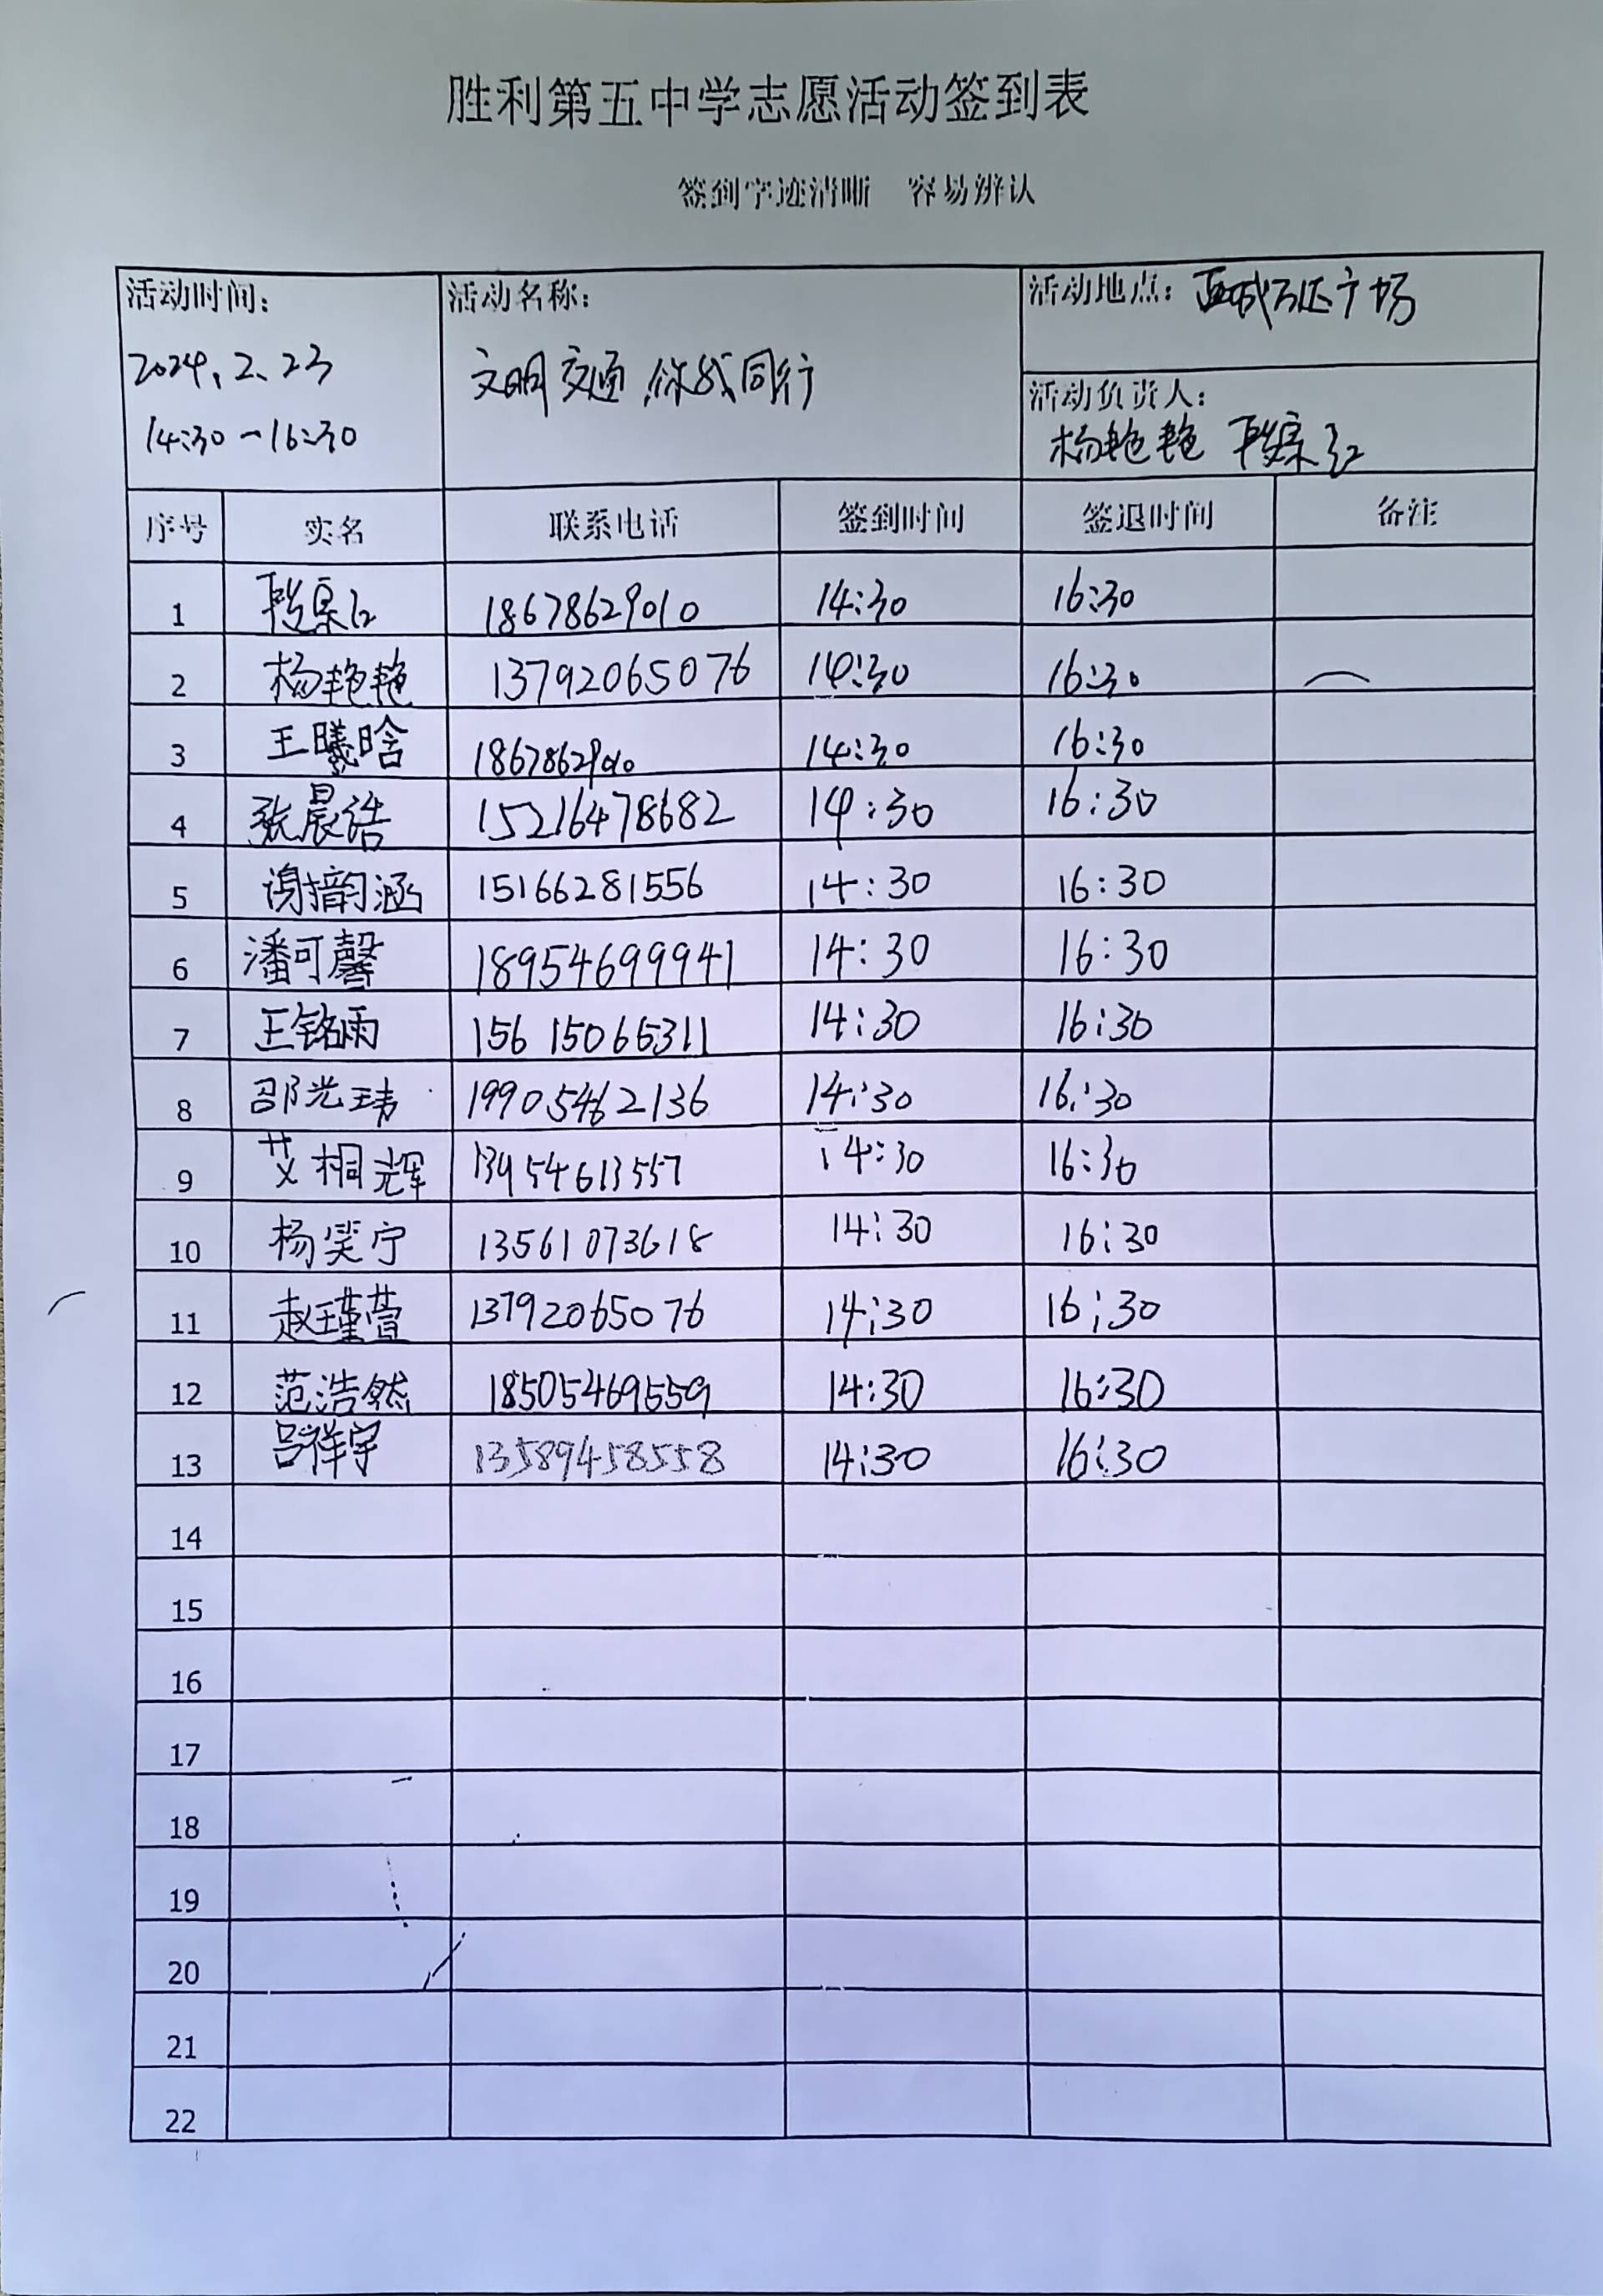 胜利第五中学志愿活动签到表
签到字迹清晰 容易辨认
活动时间：
2024.2.23
14:30-16:30
活动名称：
文明交通，你我同行
活动地点：西城万达广场
活动负责人：
杨艳艳
序号 实名 联系电话 签到时间 签退时间 备注
1 18678629010 14:30 16:30
2 杨艳艳 13792065076 14:30 16:30
3 王曦晗 18678629010 14:30 16:30
4 张晨浩 15216478682 14:30 16:30
5 谢韵涵 15166281556 14:30 16:30
6 潘可馨 18954699941 14:30 16:30
7 王铭雨 15615066311 14:30 16:30
8 邵光玮 19905462136 14:30 16:30
9 艾桐辉 13954613557 14:30 16:30
10 杨笑宁 13561073618 14:30 16:30
11 赵瑾萱 13792065076 14:30 16:30
12 范浩然 18505469559 14:30 16:30
13 吕祥宇 13589458558 14:30 16:30
14
15
16
17
18
19
20
21
22